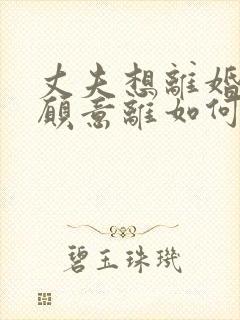 丈夫想離婚
願意離如何
碧玉珠璣